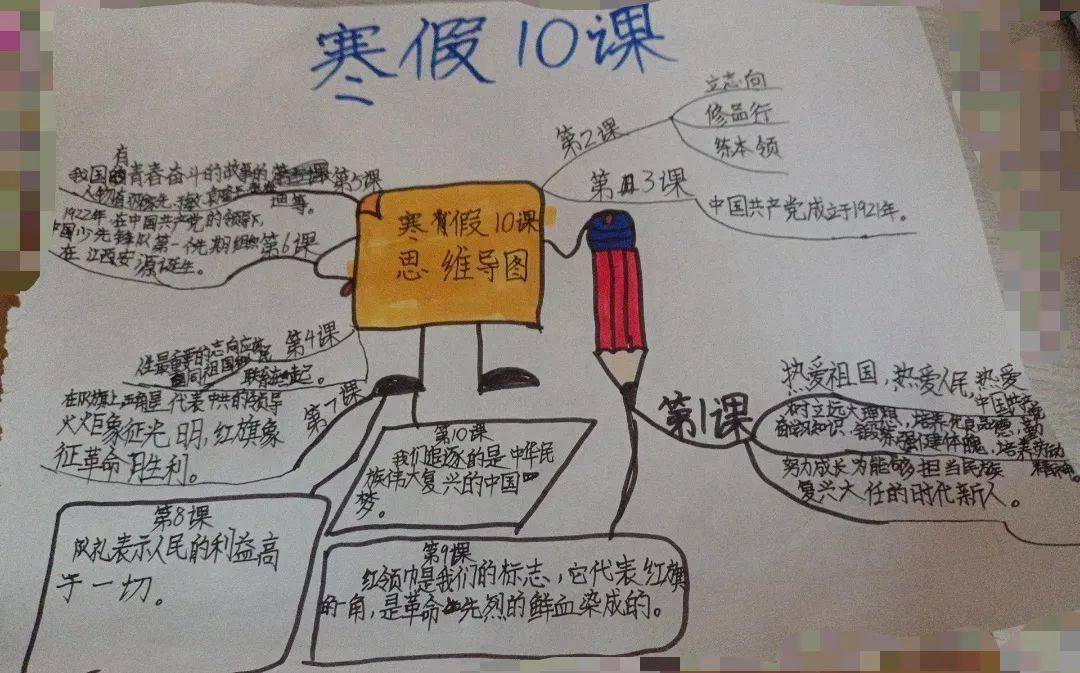 寒假10课
寒假10课
思维导图
第1课
热爱祖国,热爱人民,热爱
中国共产党
树立远大理想,培养优良品德,勤
奋学习知识,锻炼强健体魄,培养劳动
精神。
努力成长为能够担当民族
复兴大任的时代新人。
第2课
立志向
修品行
练本领
第3课
中国共产党成立于1921年。
第4课
最重要的志向应该
同祖国
联系在一起。
第5课
有
我国青春奋斗的故事的
人物
等。
第6课
1922年,在中国共产党的领导下,
中国少先队第一个先期组织
在江西安源诞生。
第7课
在队旗上五角星代表中共的领导
火炬象征光明,红旗象
征革命胜利。
第8课
队礼表示人民的利益高
于一切。
第9课
红领巾是我们的标志,它代表红旗
的一角,是革命先烈的鲜血染成的。
第10课
我们追逐的是中华民
族伟大复兴的中国
梦。